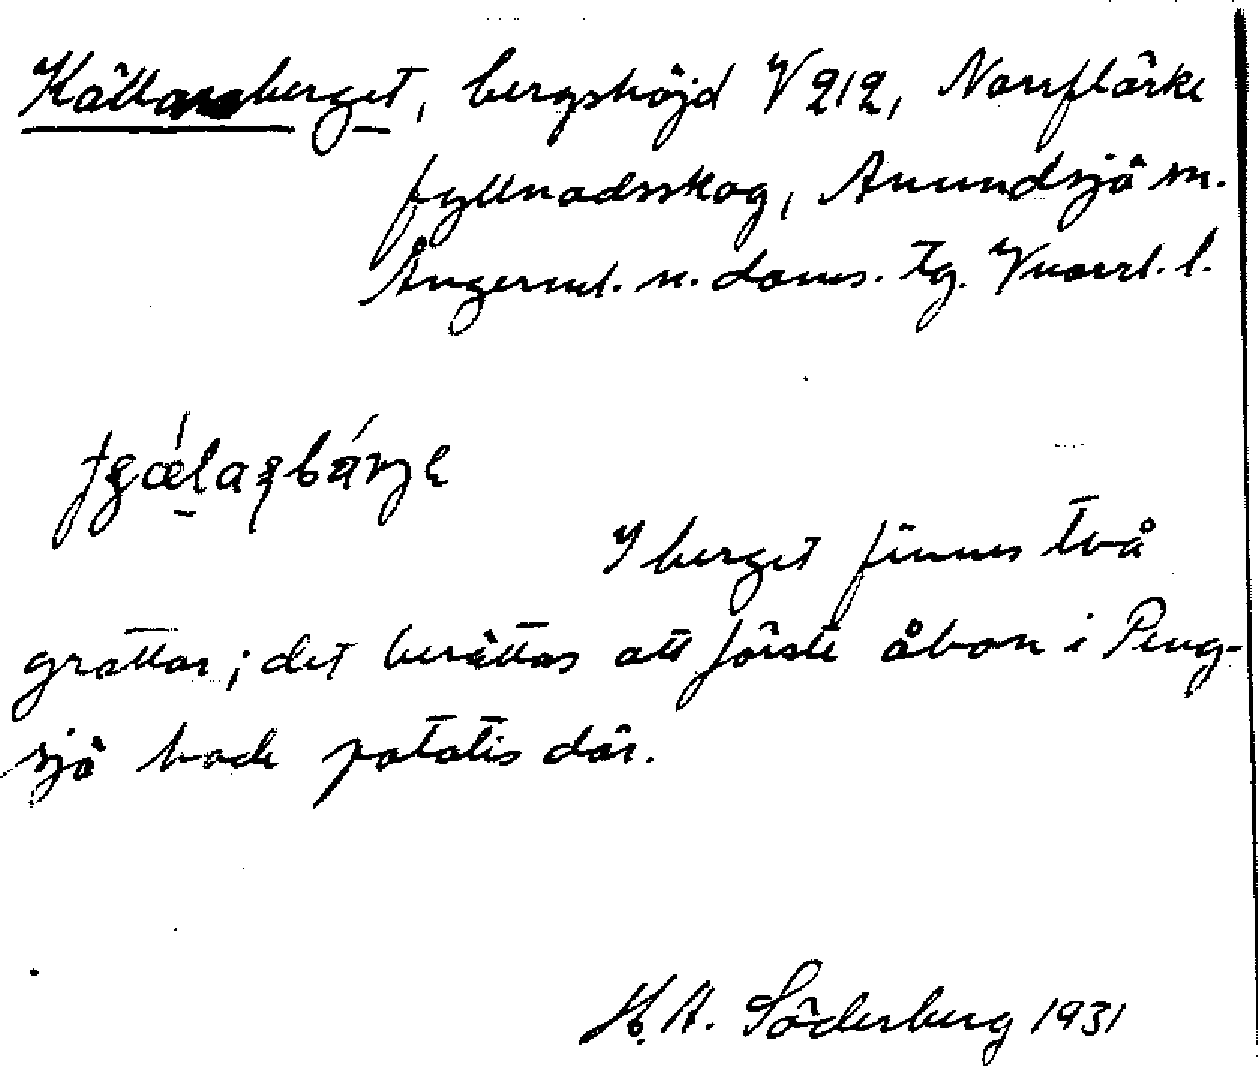 Källarsberget, bergshöjd V 212, Norrflärke
fyllnadsskog, Anundsjö sn.
Ångerml. n. doms. tg. Vnorrl. l.
I berget finnes två
grottor; det berättas att förste åbon i Peng-
sjö hade potatis där.
H. A. Söderberg 1931